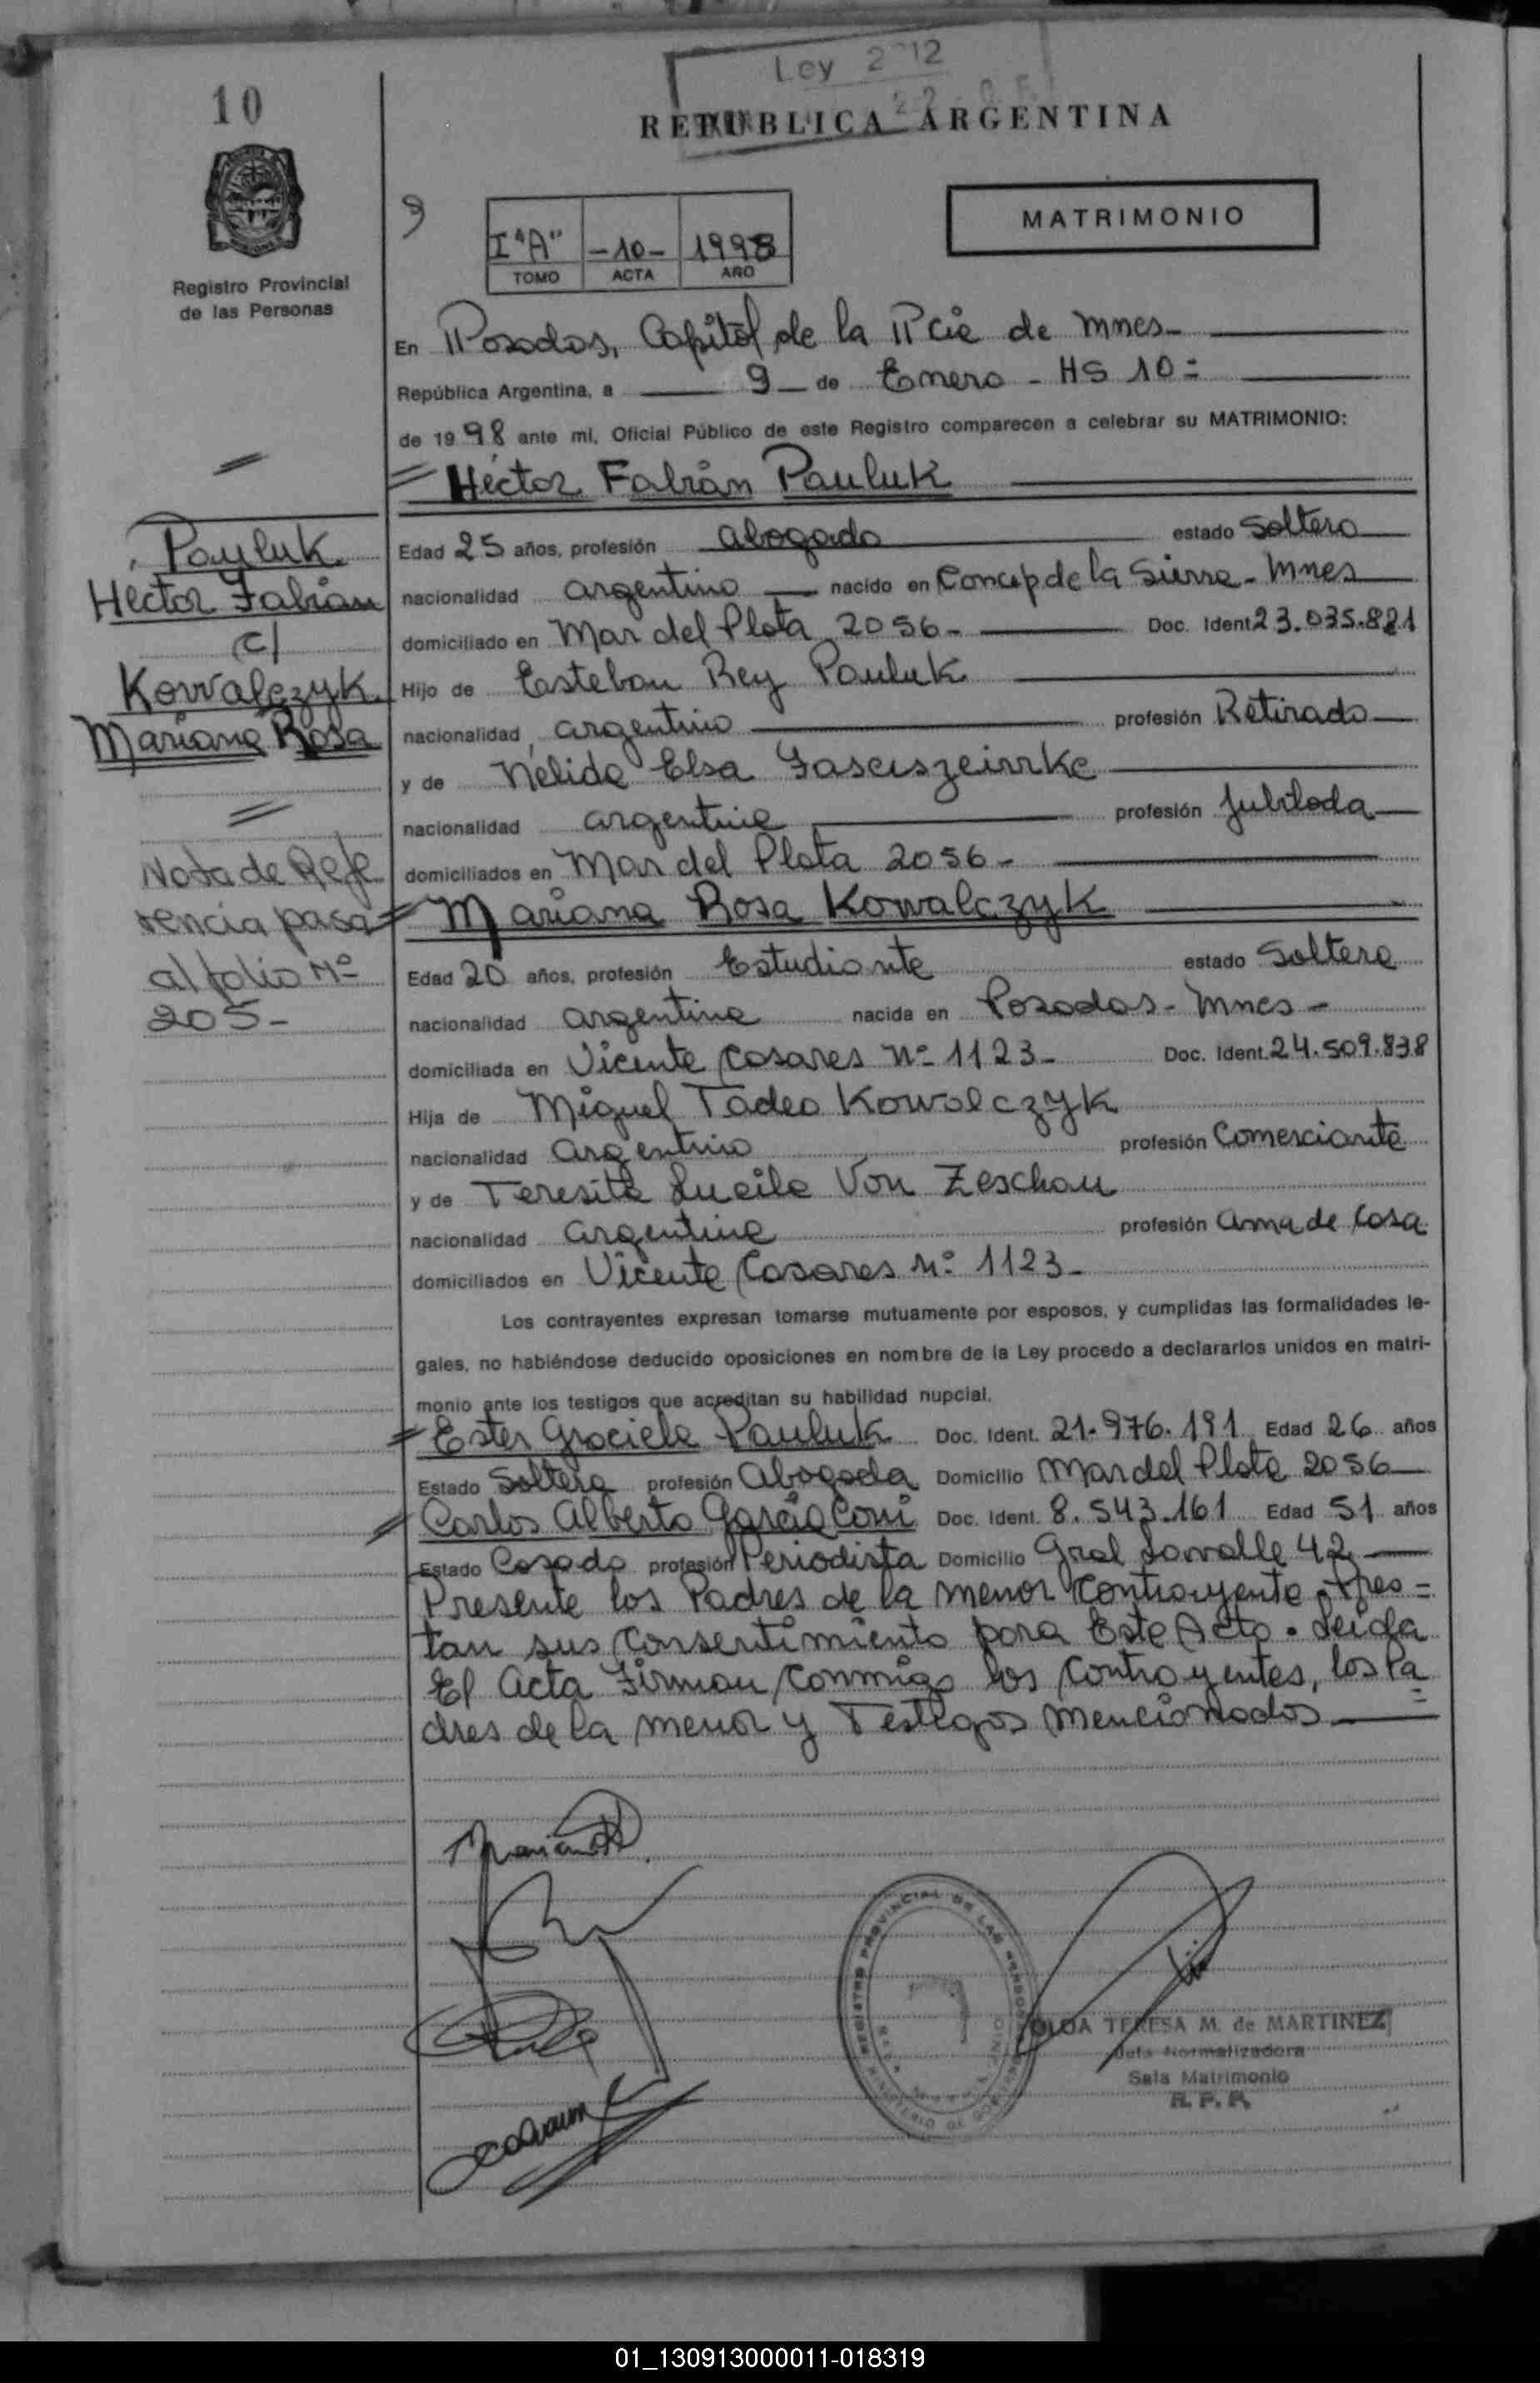 Ley
10
REPUBLICA ARGENTINA
Registro Provincial
de las Personas
9
MATRIMONIO
I "A" -10- 1998
TOMO ACTA AÑO
En Posadas, Capital de la Pcia de Mnes-
República Argentina, a 9 de Enero - HS 10=
de 1998 ante mi, Oficial Público de este Registro comparecen a celebrar su MATRIMONIO:
Héctor Fabián Pauluk
Edad 25 años, profesión abogado estado Soltero
nacionalidad argentino nacido en Concep de la Sierra - Mnes
domiciliado en Mar del Plata 2056- Doc. Ident 23.035.821
Hijo de Esteban Rey Pauluk
nacionalidad argentino profesión Retirado
y de Nelida Elsa
nacionalidad argentina profesión Jubilada
domiciliados en Mar del Plata 2056-
Mariana Rosa Kowalczyk
Edad 20 años, profesión Estudiante estado Soltera
nacionalidad argentina nacida en Posadas - Mnes -
domiciliada en Vicente Casares Nº 1123- Doc. Ident. 24.509.838
Hija de Miguel Tadeo Kowalczyk
nacionalidad argentino profesión Comerciante
y de Teresita Lucila Von Zeschau
nacionalidad argentina profesión ama de casa
domiciliados en Vicente Casares Nº 1123-
Los contrayentes expresan tomarse mutuamente por esposos, y cumplidas las formalidades le-
gales, no habiéndose deducido oposiciones en nombre de la Ley procedo a declararlos unidos en matri-
monio ante los testigos que acreditan su habilidad nupcial.
Ester Graciela Pauluk Doc. Ident. 21.976.191 Edad 26 años
Estado Soltera profesión Abogada Domicilio Mar del Plata 2056
Carlos Alberto Garcia Coni Doc. Ident. 8.543.161 Edad 51 años
Estado Casado profesión Periodista Domicilio Gral Lavalle 42
Presente los Padres de la menor Contrayente Pres=
tan sus Consentimiento para Este Acto. Leida
El Acta Firman Conmigo los Contrayentes, los Pa
=
dres de la menor y Testigos Mencionados
Pauluk
Hector Fabián
C/
Kowalczyk
Mariana Rosa
Nota de Refe
rencia pasa
al folio Nº
205-
REGISTRO PROVINCIAL DE LAS PERSONAS
TERESA M. de MARTINEZ
Jefa Normalizadora
Sala Matrimonio
R. P. P.
01_130913000011-018319